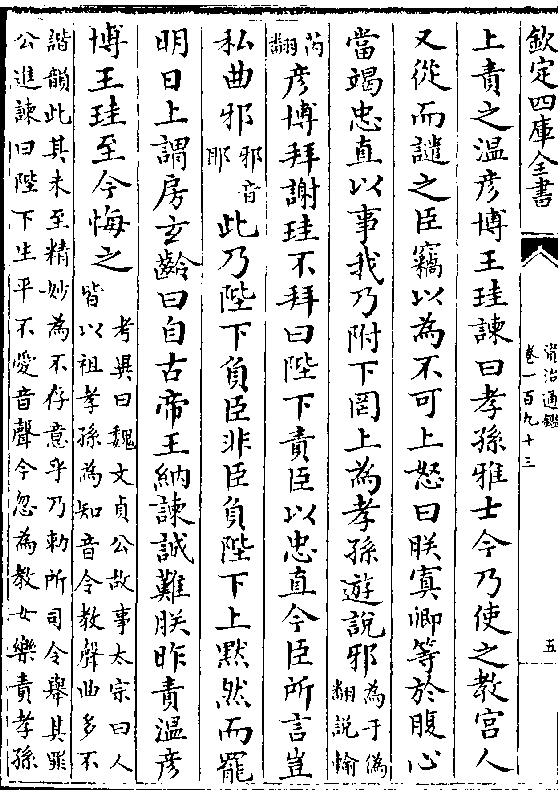 欽定四庫全書
資治通鑑
卷一百九十三
五
上責之温彦博王珪諫曰孝孫雅士今乃使之教宫人
又從而譴之臣竊以為不可上怒曰朕寘卿等於腹心
當竭忠直以事我乃附下罔上為孝孫遊說邪為于偽翻說輸
芮翻彦博拜謝珪不拜曰陛下責臣以忠直今臣所言豈
私曲邪邪音耶此乃陛下負臣非臣負陛下上黙然而罷
明日上謂房玄齡曰自古帝王納諫誠難朕昨責温彦
博王珪至今悔之考異曰魏文貞公故事太宗曰人皆以祖孝孫為知音令教聲曲多不
諧韻此其未至精妙為不存意乎乃勅所司令舉其罪
公進諫曰陛下生平不愛音聲今忽為教女樂責孝孫